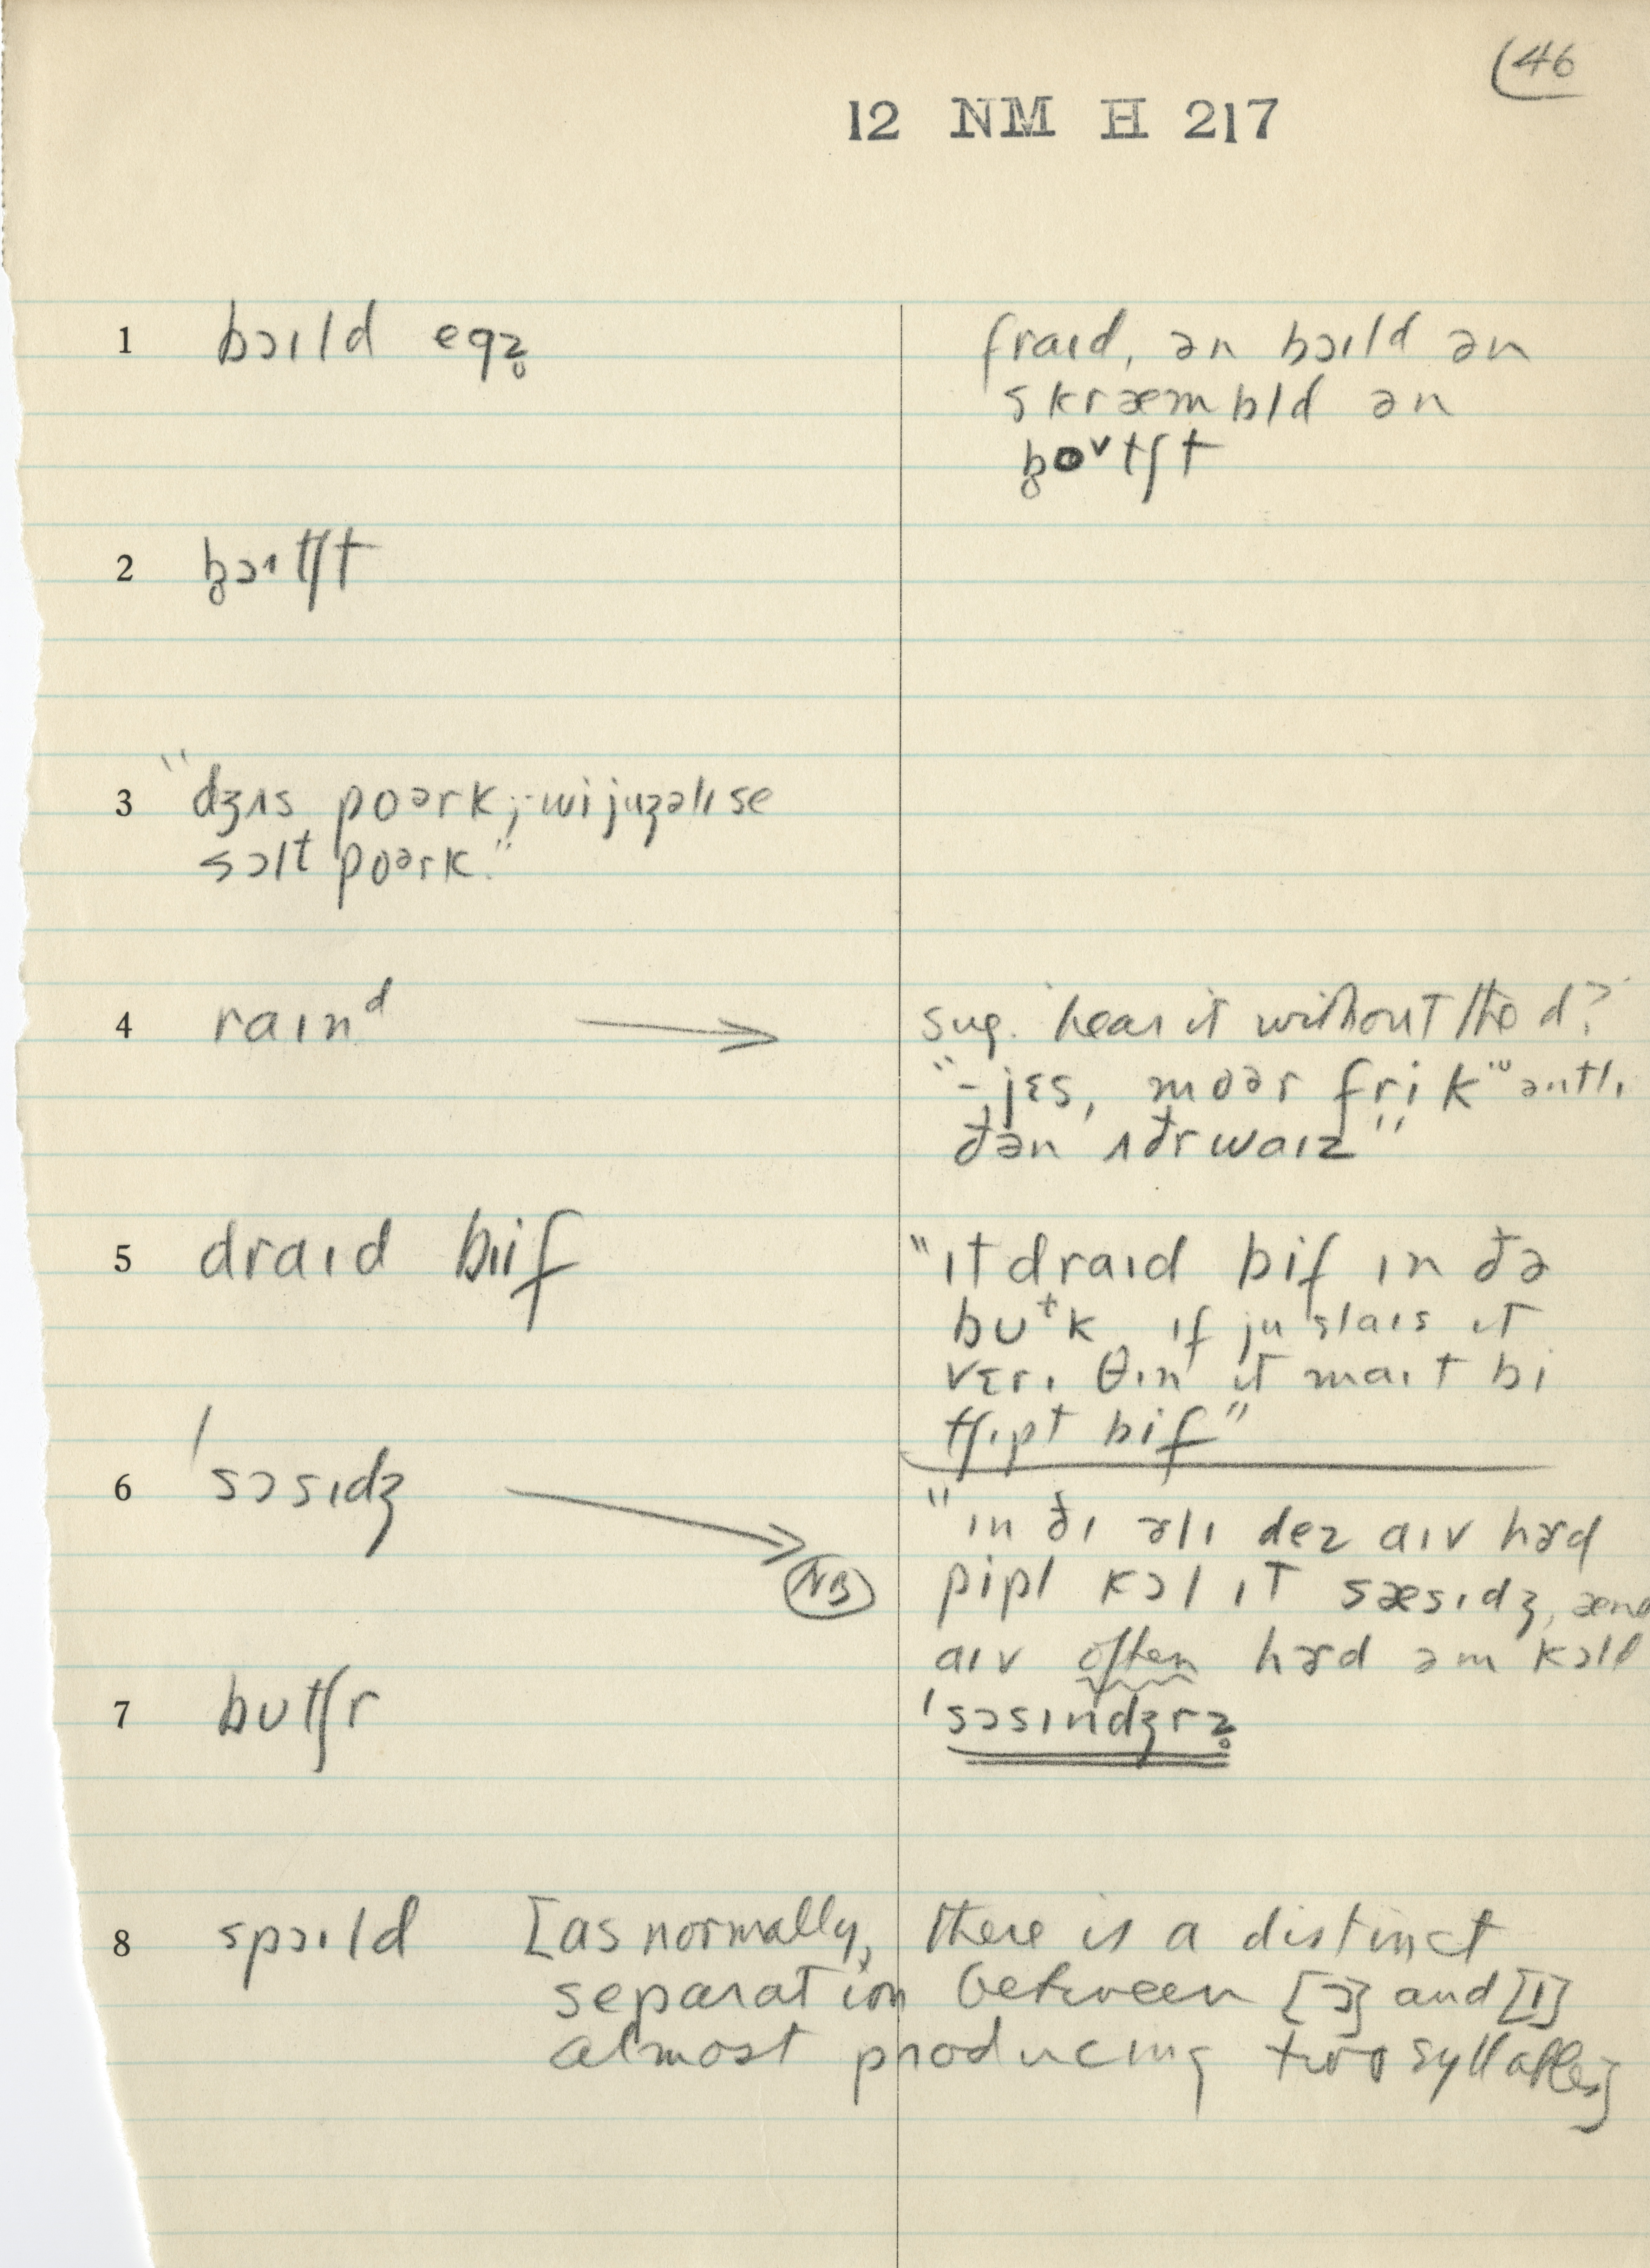 46
12 NM H 217
1 bɔɪld egz̥ fraɪd, ən bɔɪld ən
skræmbld ən
b̥oᵛtʃt
2 b̥ɔɪtʃt
3 "dʒʌs poərk; wi juʒəlɪ se
sɔlt poərk."
4 raɪnᵈ → sug. hear it without the d?
"- jɛs, moər frikʷəntlɪ
ðən ʌðrwaɪz"
5 draɪd bɪif "ɪt draɪd bif ɪn ðə
bʊ⁺k ɪf ju slaɪs ɪt
vɛrɪ θɪn ɪt maɪt bi
tʃɪpt bif"
6 ˈsɔsɪdʒ → NB "ɪn ðɪ ɝlɪ dez aɪv hɝd
pipl kɔl ɪt sæsɪdʒ, ænd
aɪv often hɝd əm kɔll
7 bʊtʃr ˈsɔsɪndʒrz̥
8 spɔɪld [as normally, there is a distinct
separation between [ɔ] and [ɪ]
almost producing two syllables]